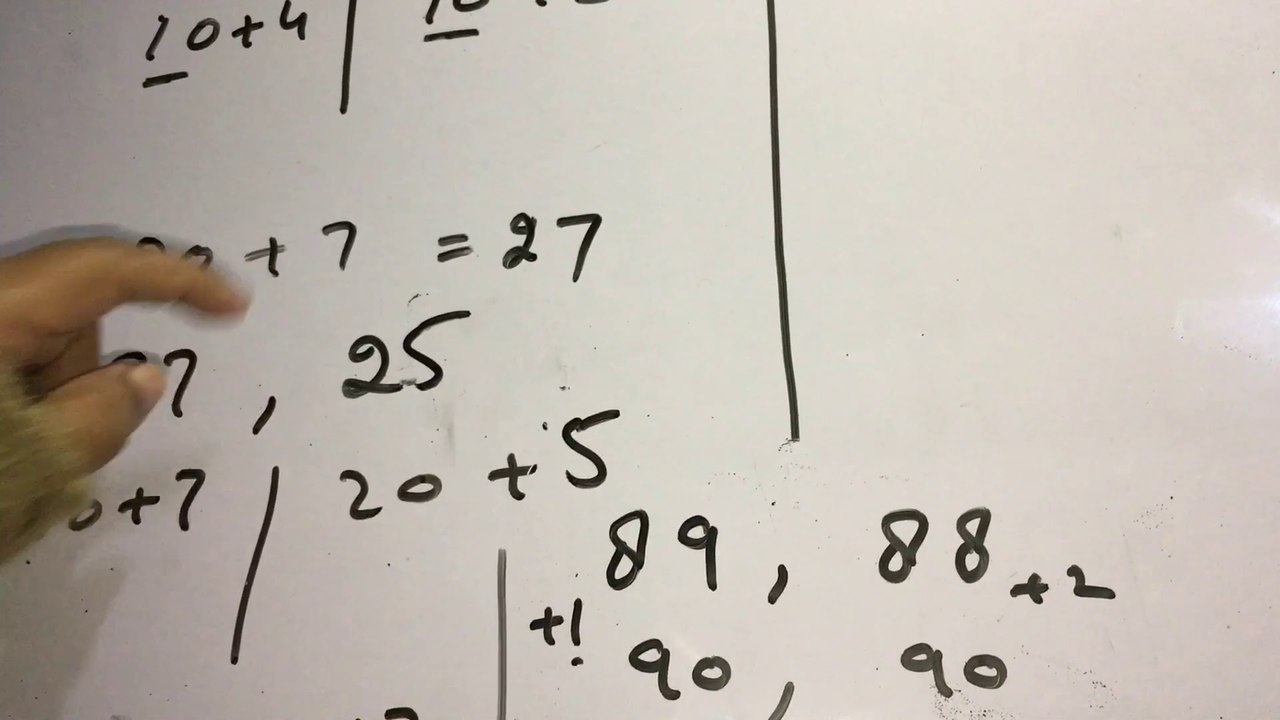 10+4
+ 7 = 27
7 , 25
0+7 | 20 + 5
89 , 88 +2
+1 90 , 90